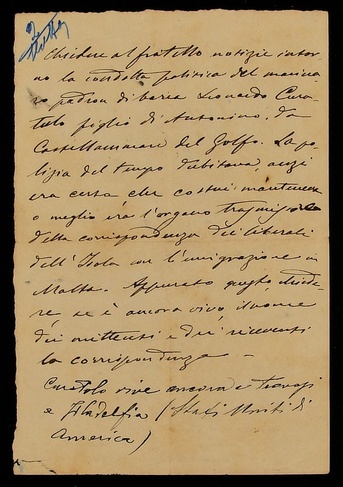 Chiedere al fratello notizie intor-
no la condotta politica del marina-
ro padron di barca Leonardo Cura-
tulo figlio di Antonino, da
Castellammare del Golfo. La po-
lizia del tempo dubitava, anzi
era certa che costui mantenesse
o meglio era l'organo trasmissore
della corrispondenza dei liberali
dell'Isola con l'emigrazione in
Malta. Appurato questo, chiede-
re se è ancora vivo il nome
dei mittenti e dei riceventi
la corrispondenza –
Curatolo vive ancora e trovasi
a Filadelfia (Stati Uniti di
America)